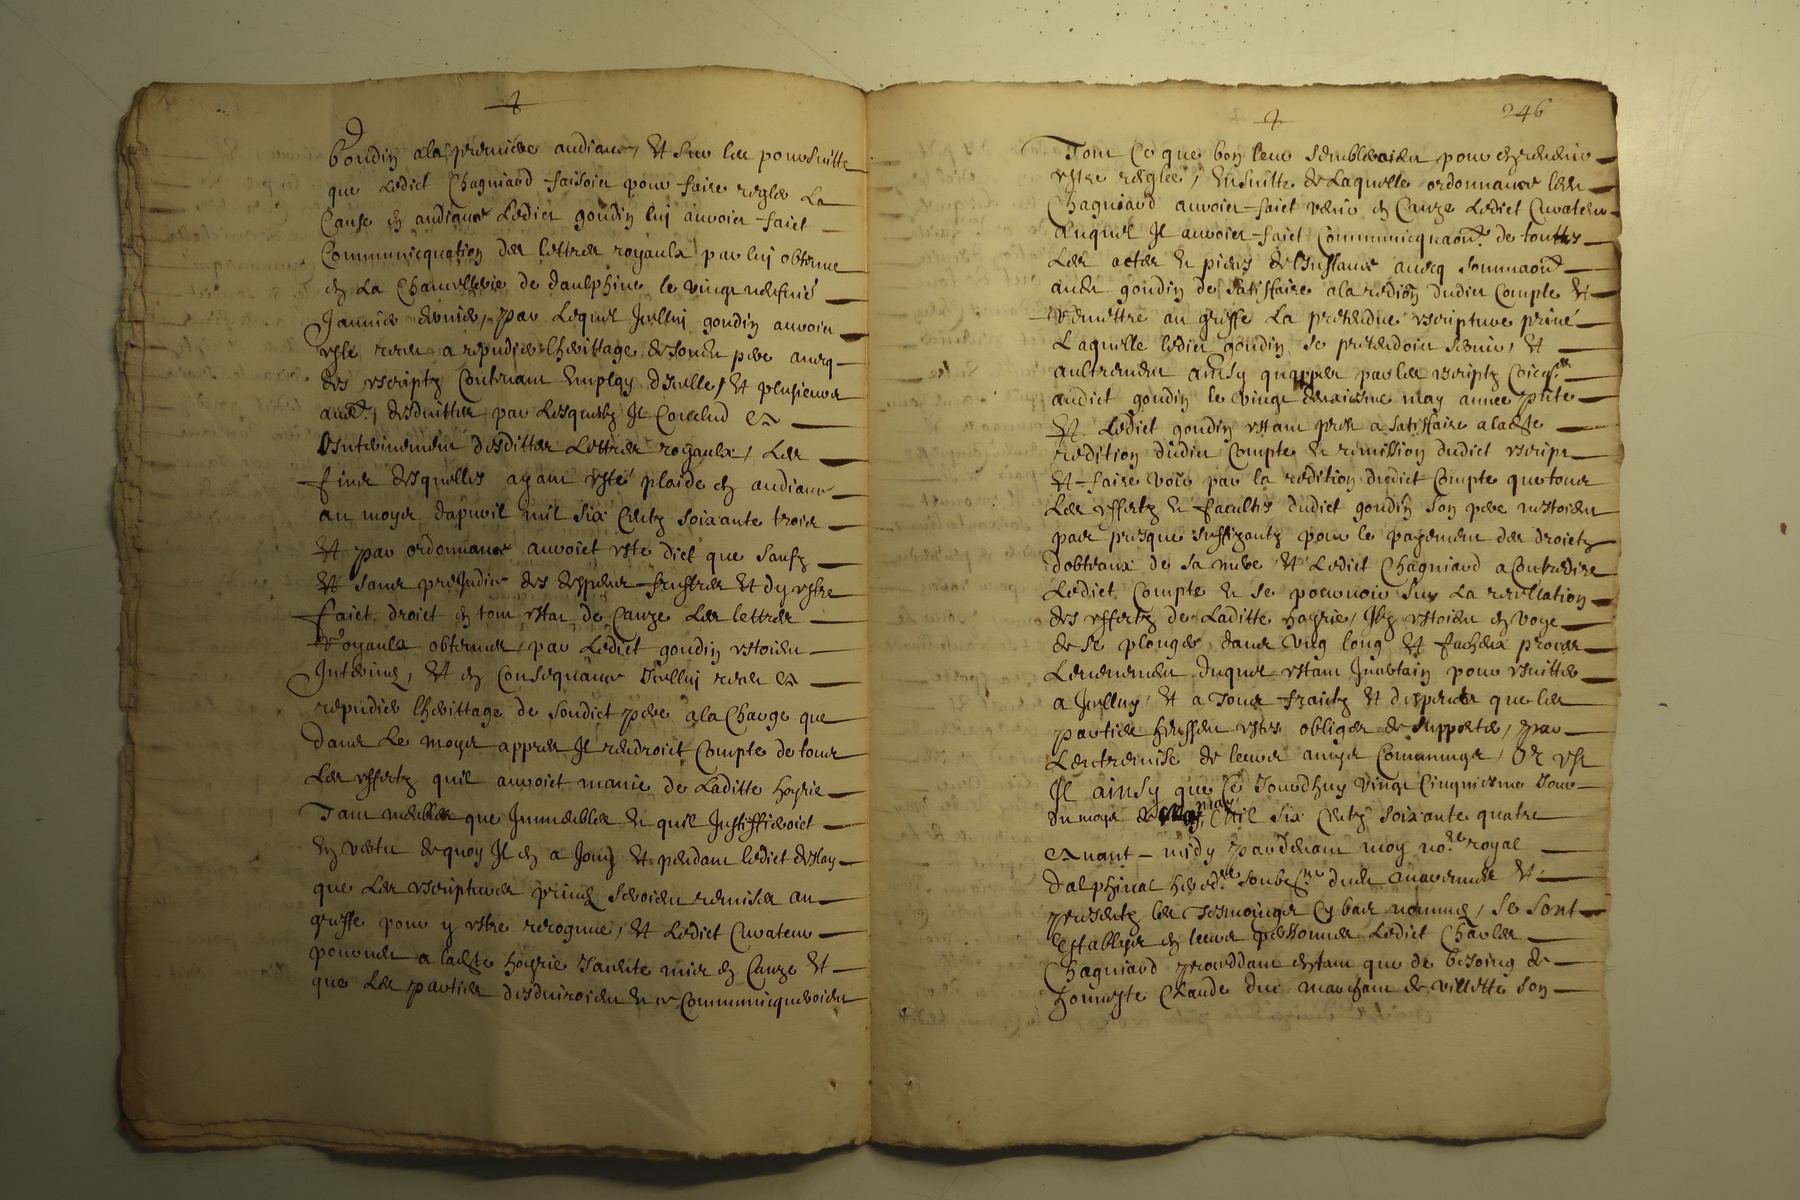 goudin a la premiere audiance, et sur les poursuitte
que Ledict Chagniard faisoit pour faire regler La
Cause en audiance Ledict goudin luj auroict faict
Communicquation des lettres royaulx par luj obtenue
en La Chancellerie de daulphine le vingt neufvie
Janvier dernier, par Lequel Jcelluj goudin auroict
esté receu a repudier lheritage de sondict pere avecq
des escriptz Contenant Employ dicelle, et plusieurs
aultres desduittes par Lesquels Jl Conclud en
Lintherinement desdittes Lettres royaulx, Les
fins desquelles ayant esté plaide en audiance
au moys dapvril mil six Centz soixante trois
Et par ordonnance auroict esté dict que saufz
Et sans prejudice des despens frustres et dy estre
faict droict en tout estat de Cauze Les lettres
Royaulx obtenues par Ledict goudin estoient
Jntherines, Et en Consequance Jcelluj receu en
repudier lherittage de sondict pere a la Charge que
Dans Le moys appres Jl rendroict Compte de tous
Les effectz quil auroict manié de Laditte hoyrie
Tant meubles que Jmmeubles et quil Justiffieroict
En vertu de quoy Jl en a Jouy et pendant ledict deslay
que Les escriptures privés seroient remises au
greffe pour y estre recognue, Et Ledict Curateur
pourveu a ladicte hoyrie seroit mis en Cauze Et
que Les parties desduiroient et se Communicqueroient
246
Tout Ce que bon leur sembleroient pour en jugement
estre reglée, Ensuitte de Laquelle ordonnance Ledict
Chagniard auroict faict venir en Cauze Ledict Curateur
auquel Jl auroict faict Communicquaon de touttes
Les actes et pieces de Linstance avecq sommaon
audict goudin de satisfaire a la redition dudict Compte Et
remettre au greffe La pretendue escripture privé
Laquelle ledict goudin se pretendoict servir, Et
aultrement ainsy quappert par les escriptz
audict goudin le vingt may année pnte
Et Ledict goudin estant prest a satisfaire a ladte
redition dudict Compte et remission dudict escript
Et faire voir par la redition dudict Compte que tous
Les effectz et facultes dudict goudin son pere nestoient
pas presque suffizantz pour le payement des droictz
dobtaux de sa mere, Et Ledict Chagniard a Contredire
Ledict Compte et se pourvoir sur La revellation
des effectz de Laditte hoyrie, Jlz estoient en voye
de se plonger dans ung long Et facheux proces
Levenement duquel estant Jncertain pour esvitter
a Jcelluy, Et a Tous fraictz Et despens que les
parties heussent estés obliges de supporter, par
Lentremise de leurs amys Communs, Or est
Jl ainsy que Ce Jourdhuy vingt Cinquiesme Jour
du moys de may Mil six Centz soixante quatre
avant midy pardevant moy nore royal
Dalphinal hered.re soubsne Et
presentz les Tesmoingz Cy bas nommes, se sont
establys en leurs personnes Ledict Charles
Chagniard proceddant entant que de besoing de
honneste Claude duc marchant de villette son